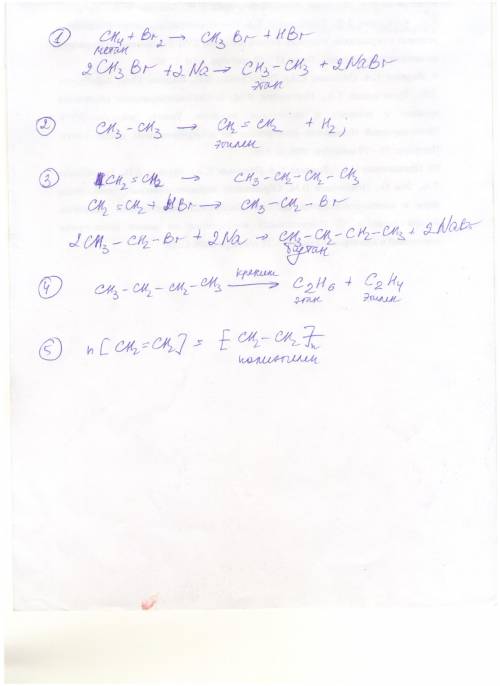 ① CH₄ + Br₂ → CH₃Br + HBr
метан
2CH₃Br + 2Na → CH₃-CH₃ + 2NaBr
этан
② CH₃-CH₃ → CH₂=CH₂ + H₂;
этилен
③ CH₂=CH₂ → CH₃-CH₂-CH₂-CH₃
CH₂=CH₂ + HBr → CH₃-CH₂-Br
2CH₃-CH₂-Br + 2Na → CH₃-CH₂-CH₂-CH₃ + 2NaBr
бутан
④ CH₃-CH₂-CH₂-CH₃ крекинг → C₂H₆ + C₂H₄
этан этилен
⑤ n[CH₂=CH₂] = [CH₂-CH₂]n
полиэтилен